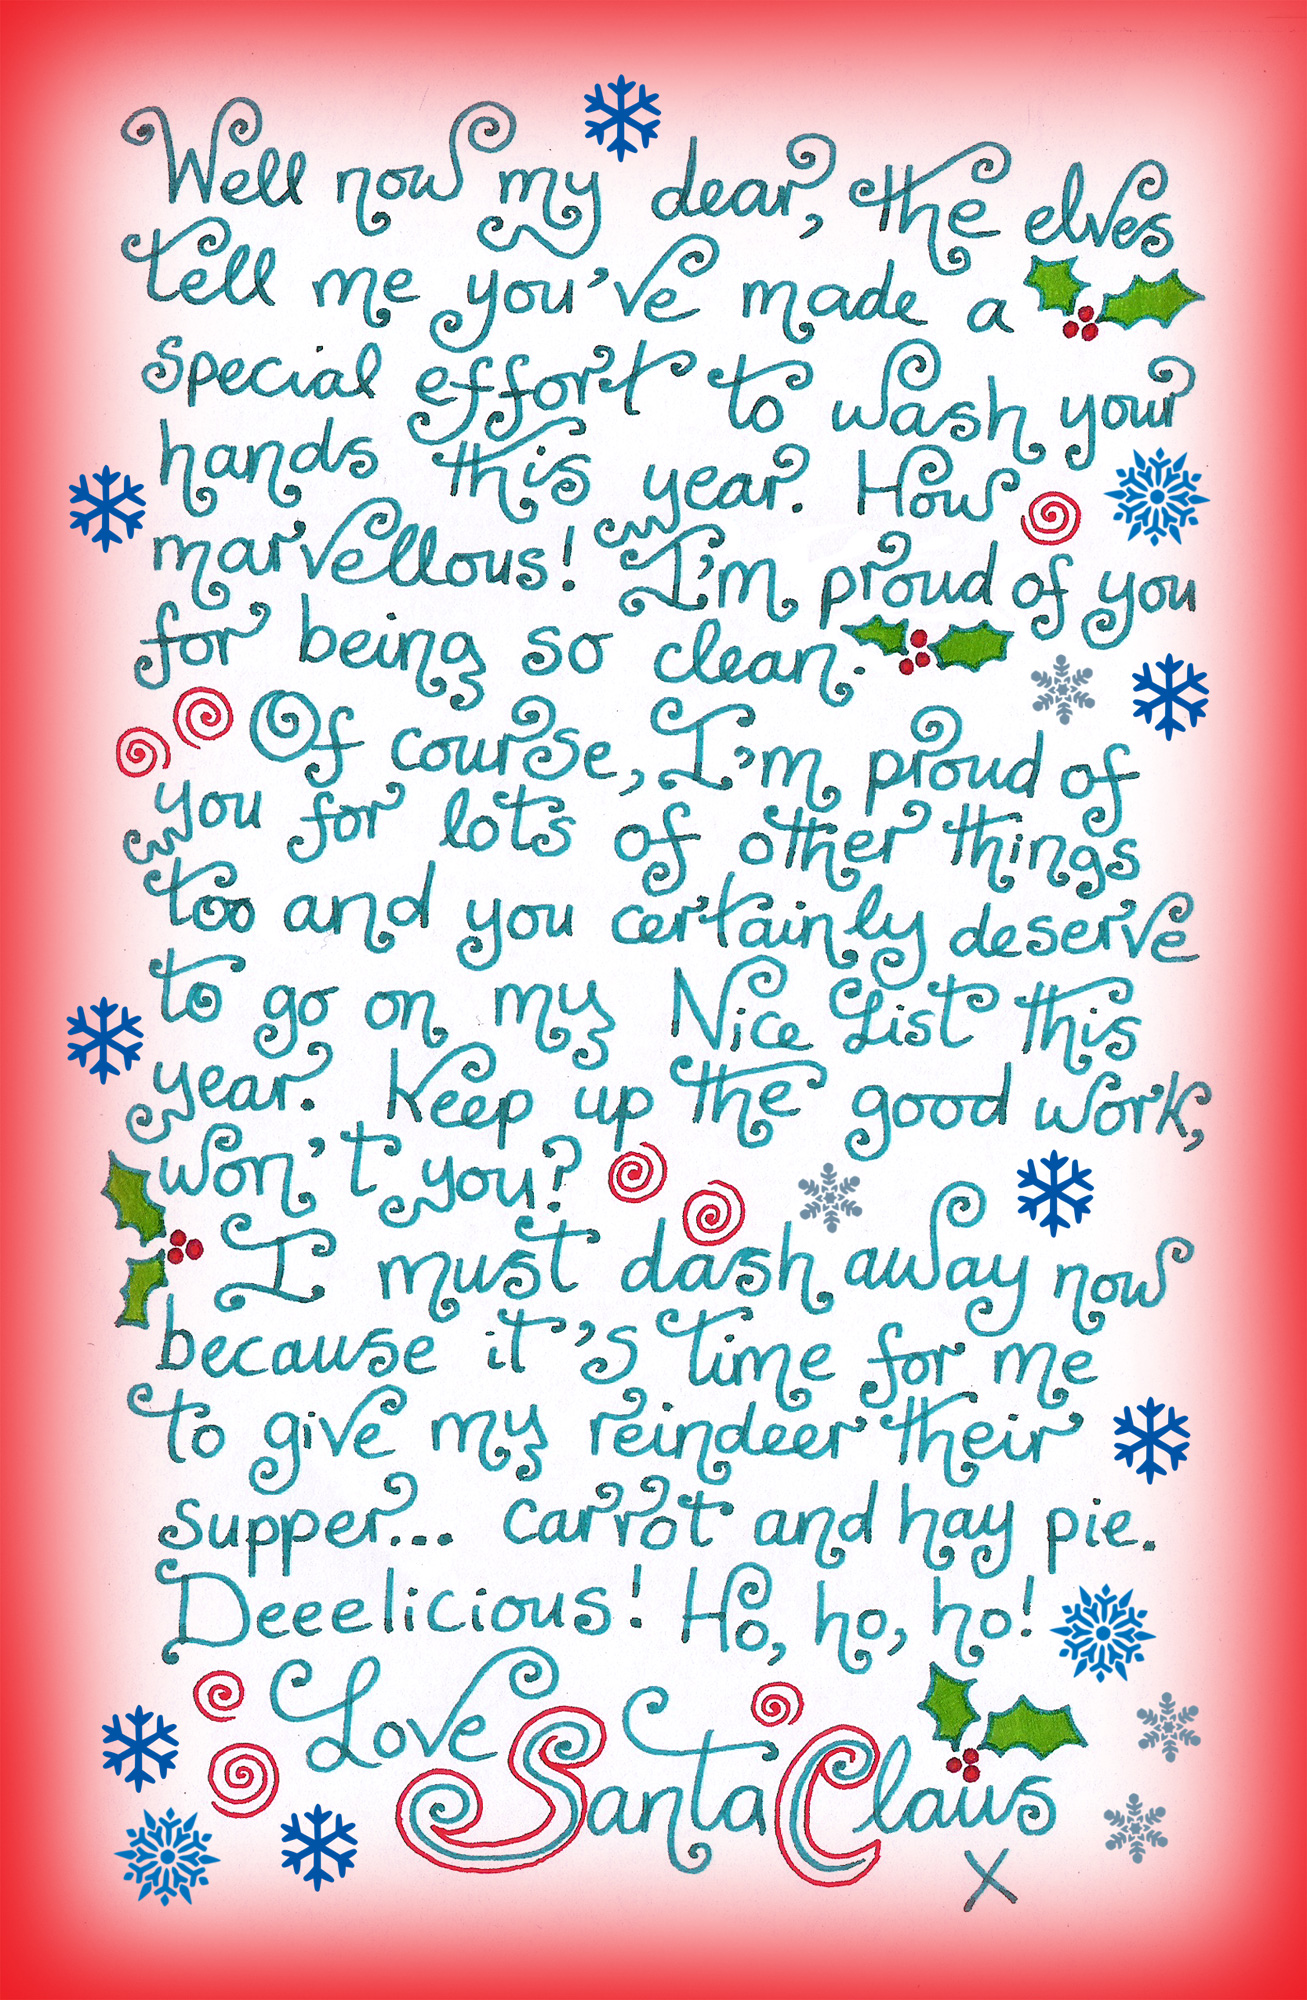 Well now my dear, the elves
tell me you've made a
special effort to wash your
hands this year. How
marvellous! I'm proud of you
for being so clean.
Of course, I'm proud of
you for lots of other things
too and you certainly deserve
to go on my Nice List this
year. Keep up the good work,
won't you?
I must dash away now
because it's time for me
to give my reindeer their
supper... carrot and hay pie.
Deeelicious! Ho, ho, ho!
Love Santa Claus
X